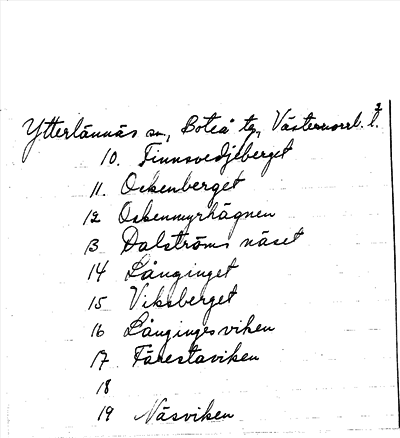 Ytterlännäs sn, Boteå tg, Västernorrl. l.
10. Finnsvedjeberget
11. Ockenberget
12 Oskenmyrhägnen
13 Dalströms näset
14 Långinget
15 Viksberget
16 Långingesviken
17 Färestaviken
18
19 Näsviken